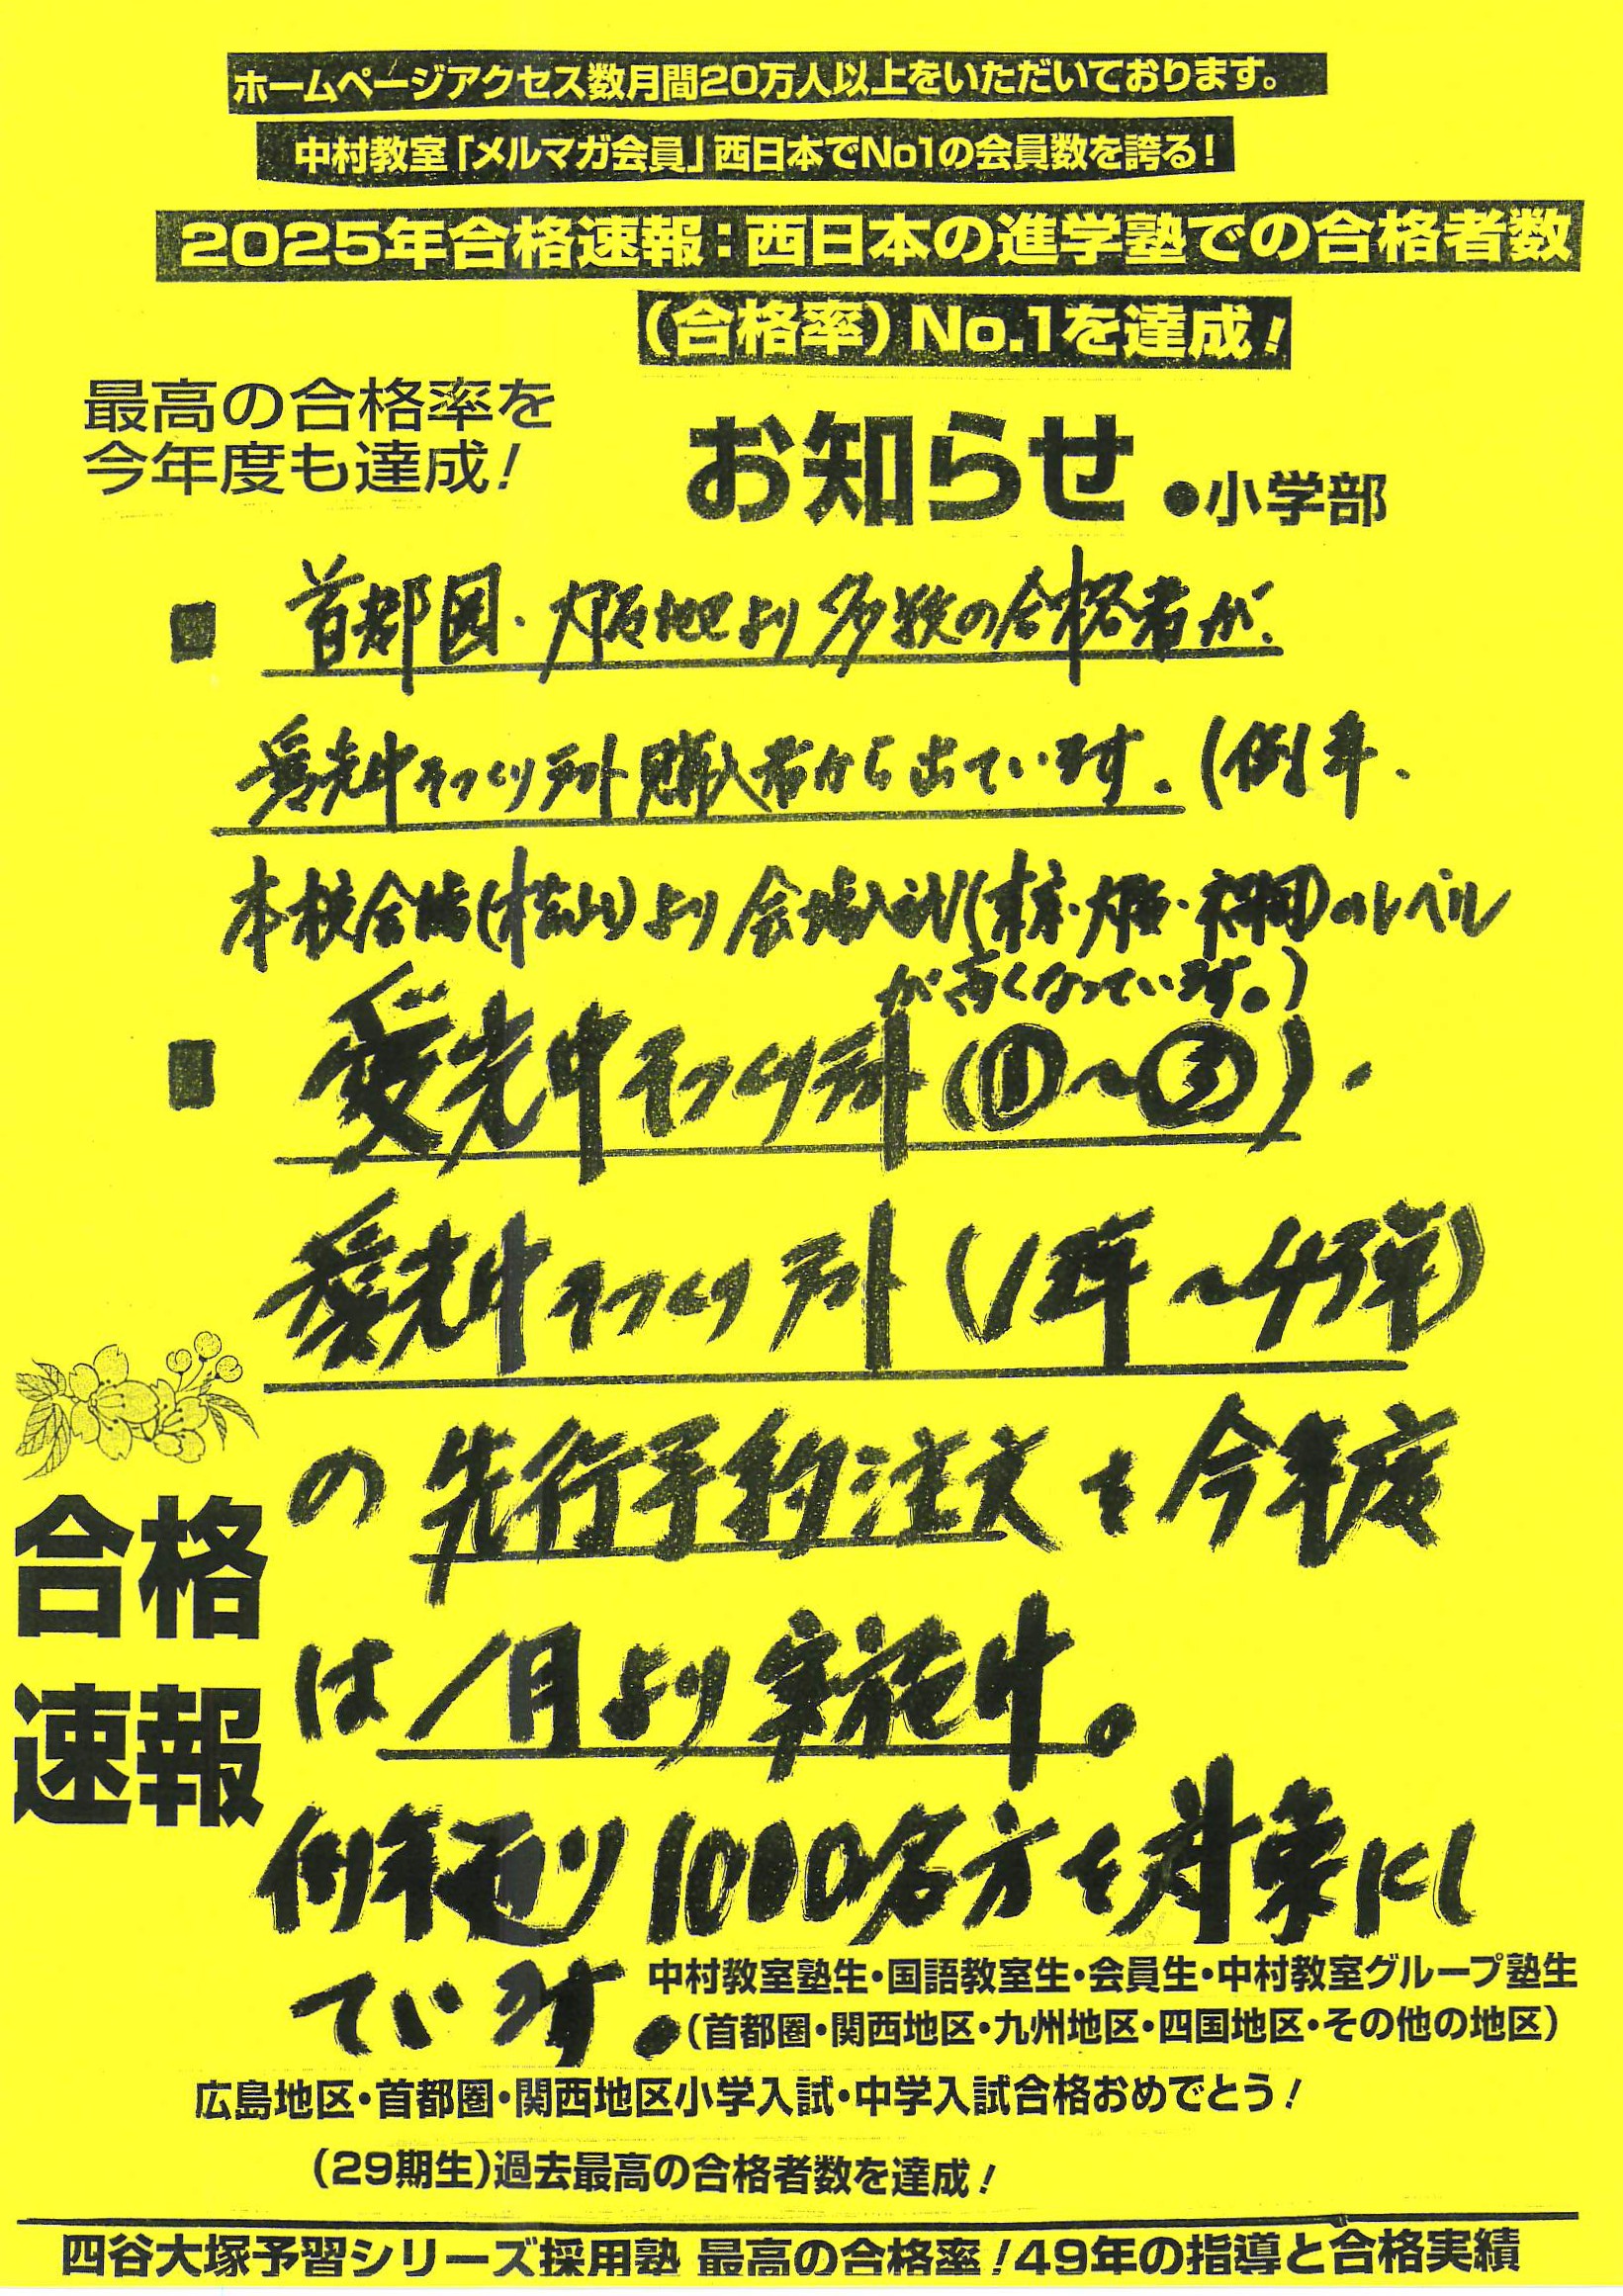 ホームページアクセス数月間20万人以上をいただいております。
中村教室「メルマガ会員」西日本でNo1の会員数を誇る！
2025年合格速報：西日本の進学塾での合格者数
（合格率）No.1を達成！
最高の合格率を
今年度も達成！
お知らせ ●小学部
■ 首都圏・大阪地区より多数の合格者が、
愛光中そっくり予想購入者から出ています。（例年、
本校会場（松山）より会場入試（東京・大阪・福岡）のレベル
が高くなっています。）
■ 愛光中そっくり（①〜③）、
愛光中そっくり（1年〜45年）
の先行予約注文を今年度
は1月より実施中。
例年通り1000名方を対象にし
ています。
中村教室塾生・国語教室生・会員生・中村教室グループ塾生
（首都圏・関西地区・九州地区・四国地区・その他の地区）
合格
速報
広島地区・首都圏・関西地区小学入試・中学入試合格おめでとう！
（29期生）過去最高の合格者数を達成！
四谷大塚予習シリーズ採用塾 最高の合格率！49年の指導と合格実績